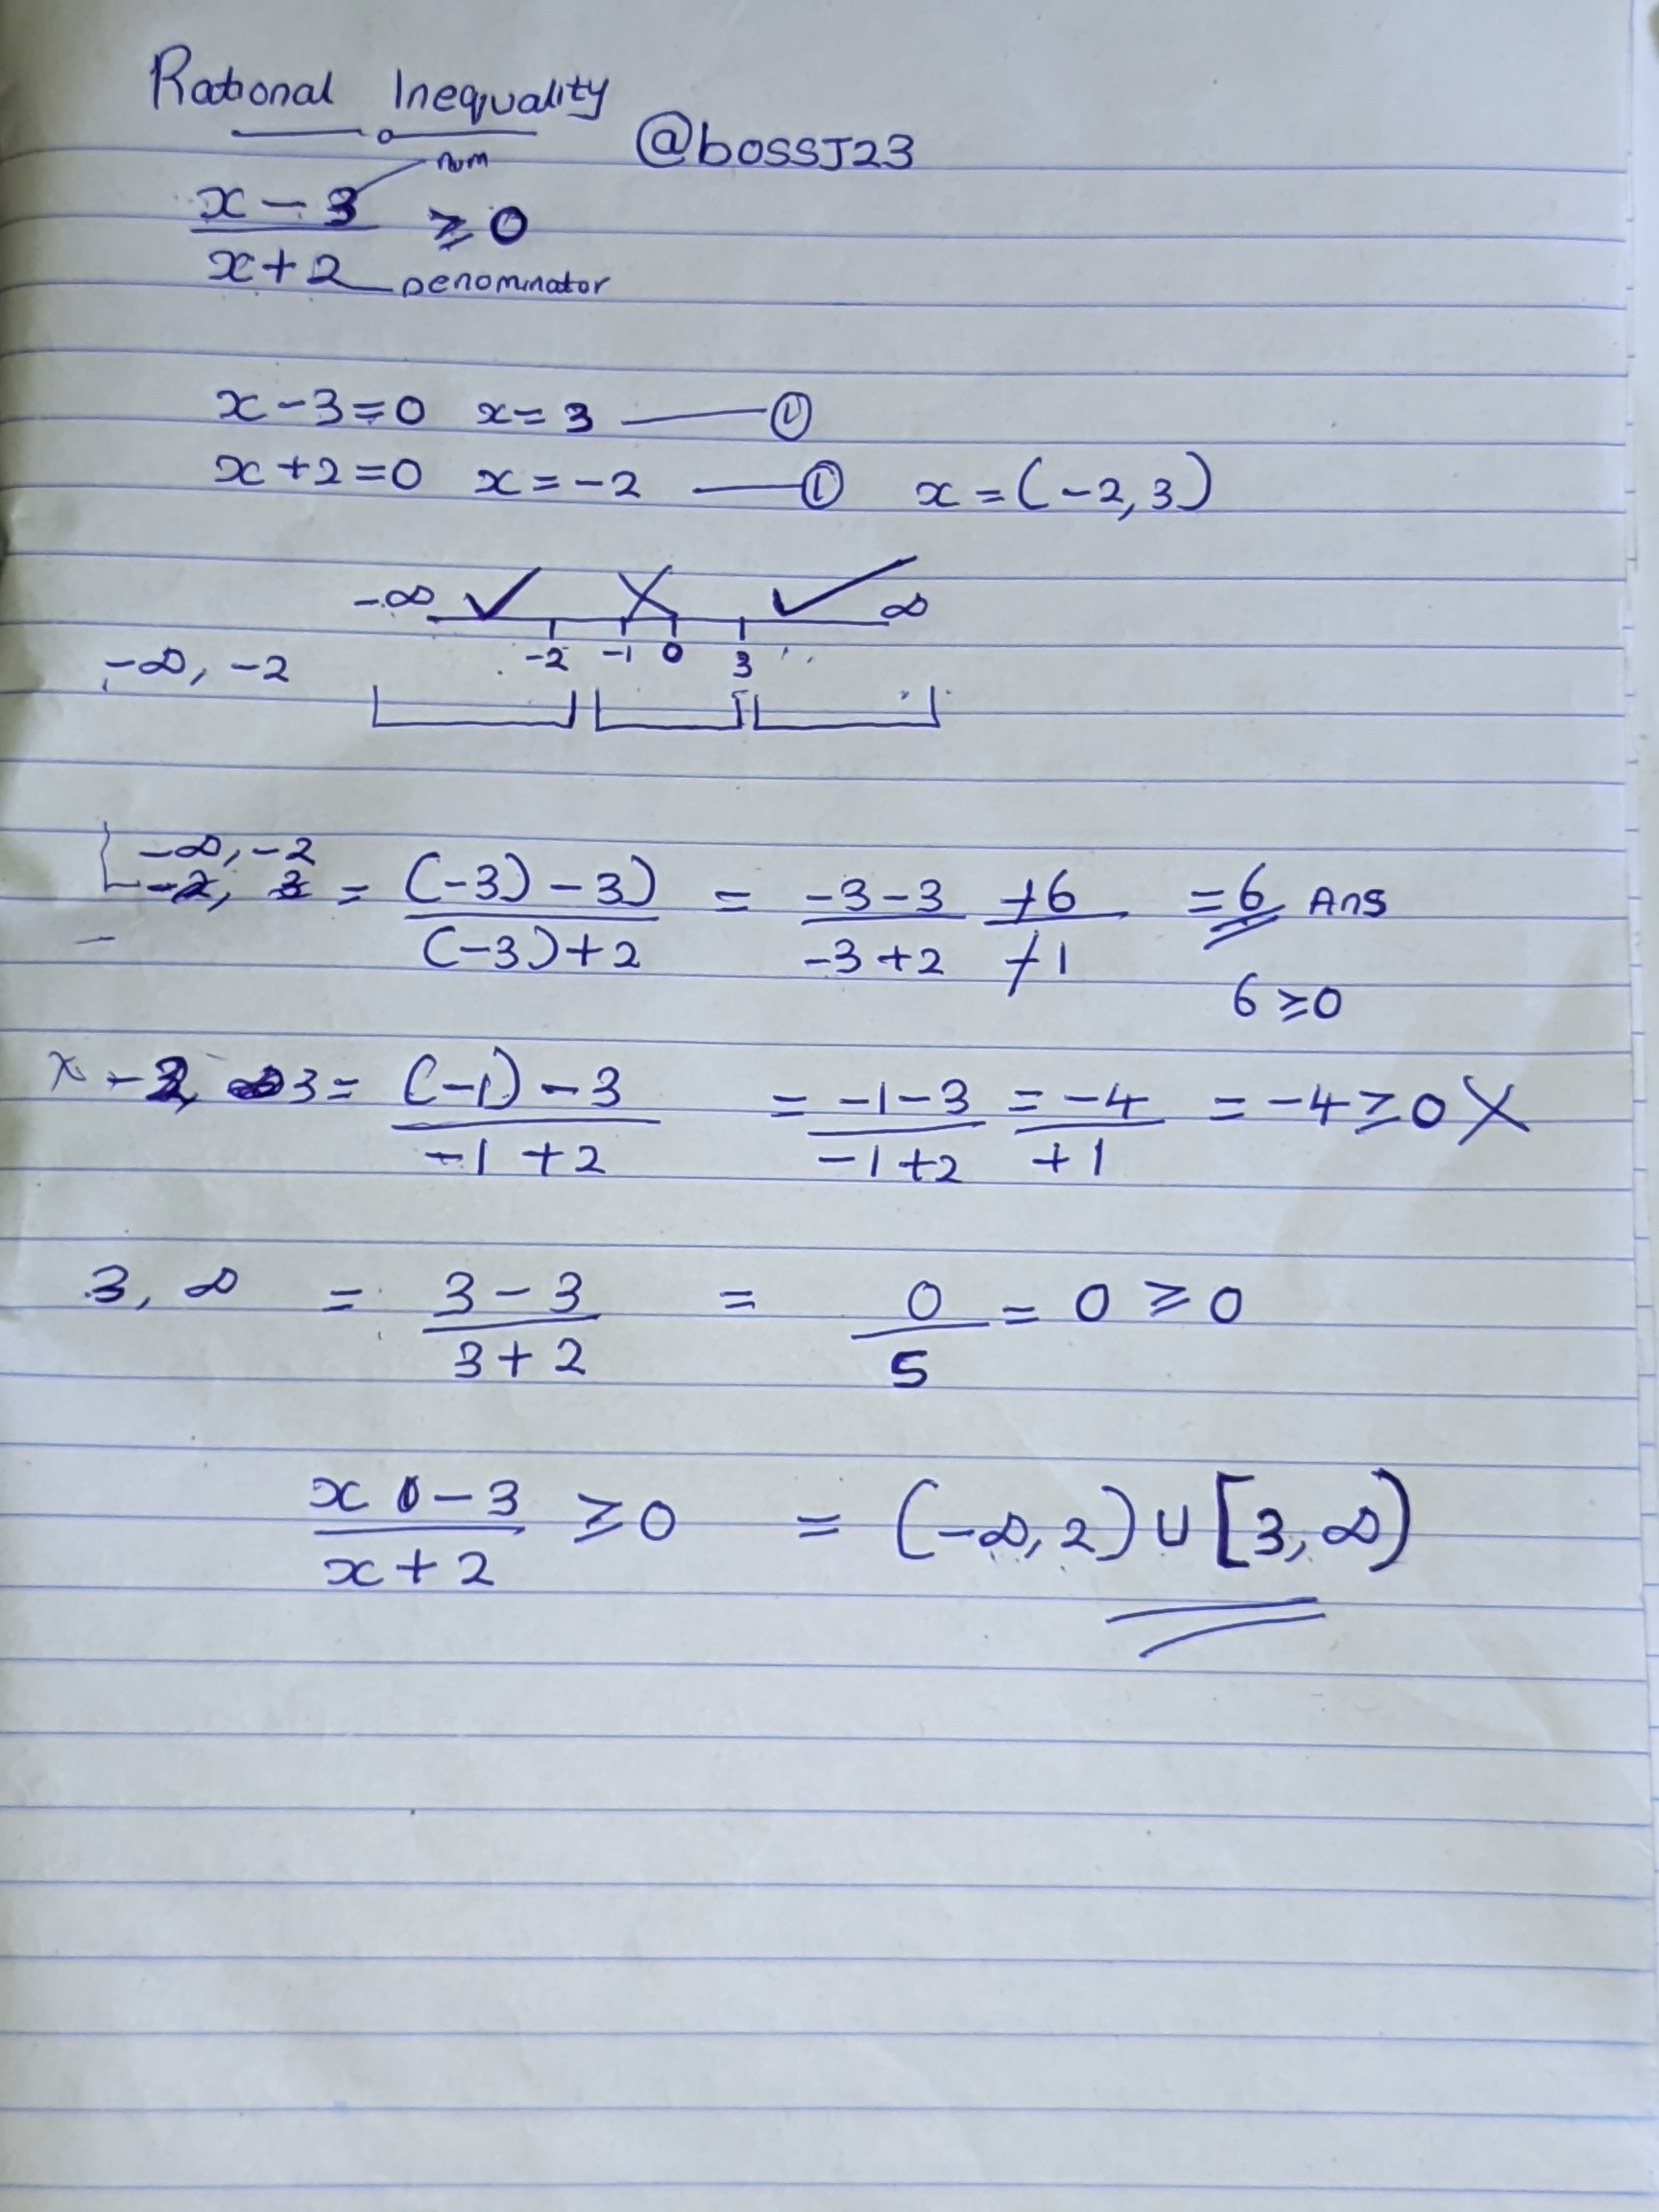 Rational Inequality
@bossJ23
num
x - 3 / x + 2 ≥ 0
Denominator
x - 3 = 0 x = 3 —— ①
x + 2 = 0 x = -2 —— ① x = (-2, 3)
-∞ ✓ X ✓ ∞
-2 -1 0 3
-∞, -2
-∞, -2
-2, 3 = (-3) - 3) / (-3) + 2 = -3 - 3 / -3 + 2 -6 / -1 = 6 Ans
6 ≥ 0
x -2, 3 = (-1) - 3 / -1 + 2 = -1 - 3 / -1 + 2 = -4 / +1 = -4 ≥ 0 X
3, ∞ = 3 - 3 / 3 + 2 = 0 / 5 = 0 ≥ 0
x - 3 / x + 2 ≥ 0 = (-∞, 2) ∪ [3, ∞)